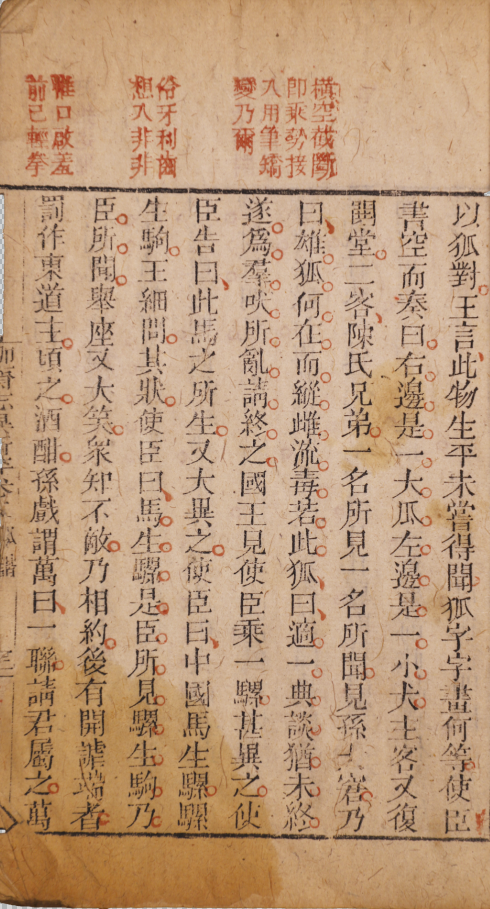 橫空截斷
即乘勢接
入用筆矯
變乃爾
牙利齒
想入非非
口啟羞
前已輕
以狐對王言此物生平未嘗得聞狐字字畫何等使臣
書空而奏曰右邊是一大瓜左邊是一小犬主客又復
鬨堂二客陳氏兄弟一名所見一名所聞見孫大窘乃
曰雄狐何在而縱雌流毒若此狐曰適一典談猶未終
遂爲羣吠所亂請終之國王見使臣乘一騾甚異之使
臣告曰此馬之所生又大異之使臣曰中國馬生騾騾
生駒王細問其狀使臣曰馬生騾是臣所見騾生駒乃
臣所聞舉座又大笑衆知不敵乃相約後有開謔端者
罰作東道主頃之酒酣孫戲謂萬曰一聯請君屬之萬